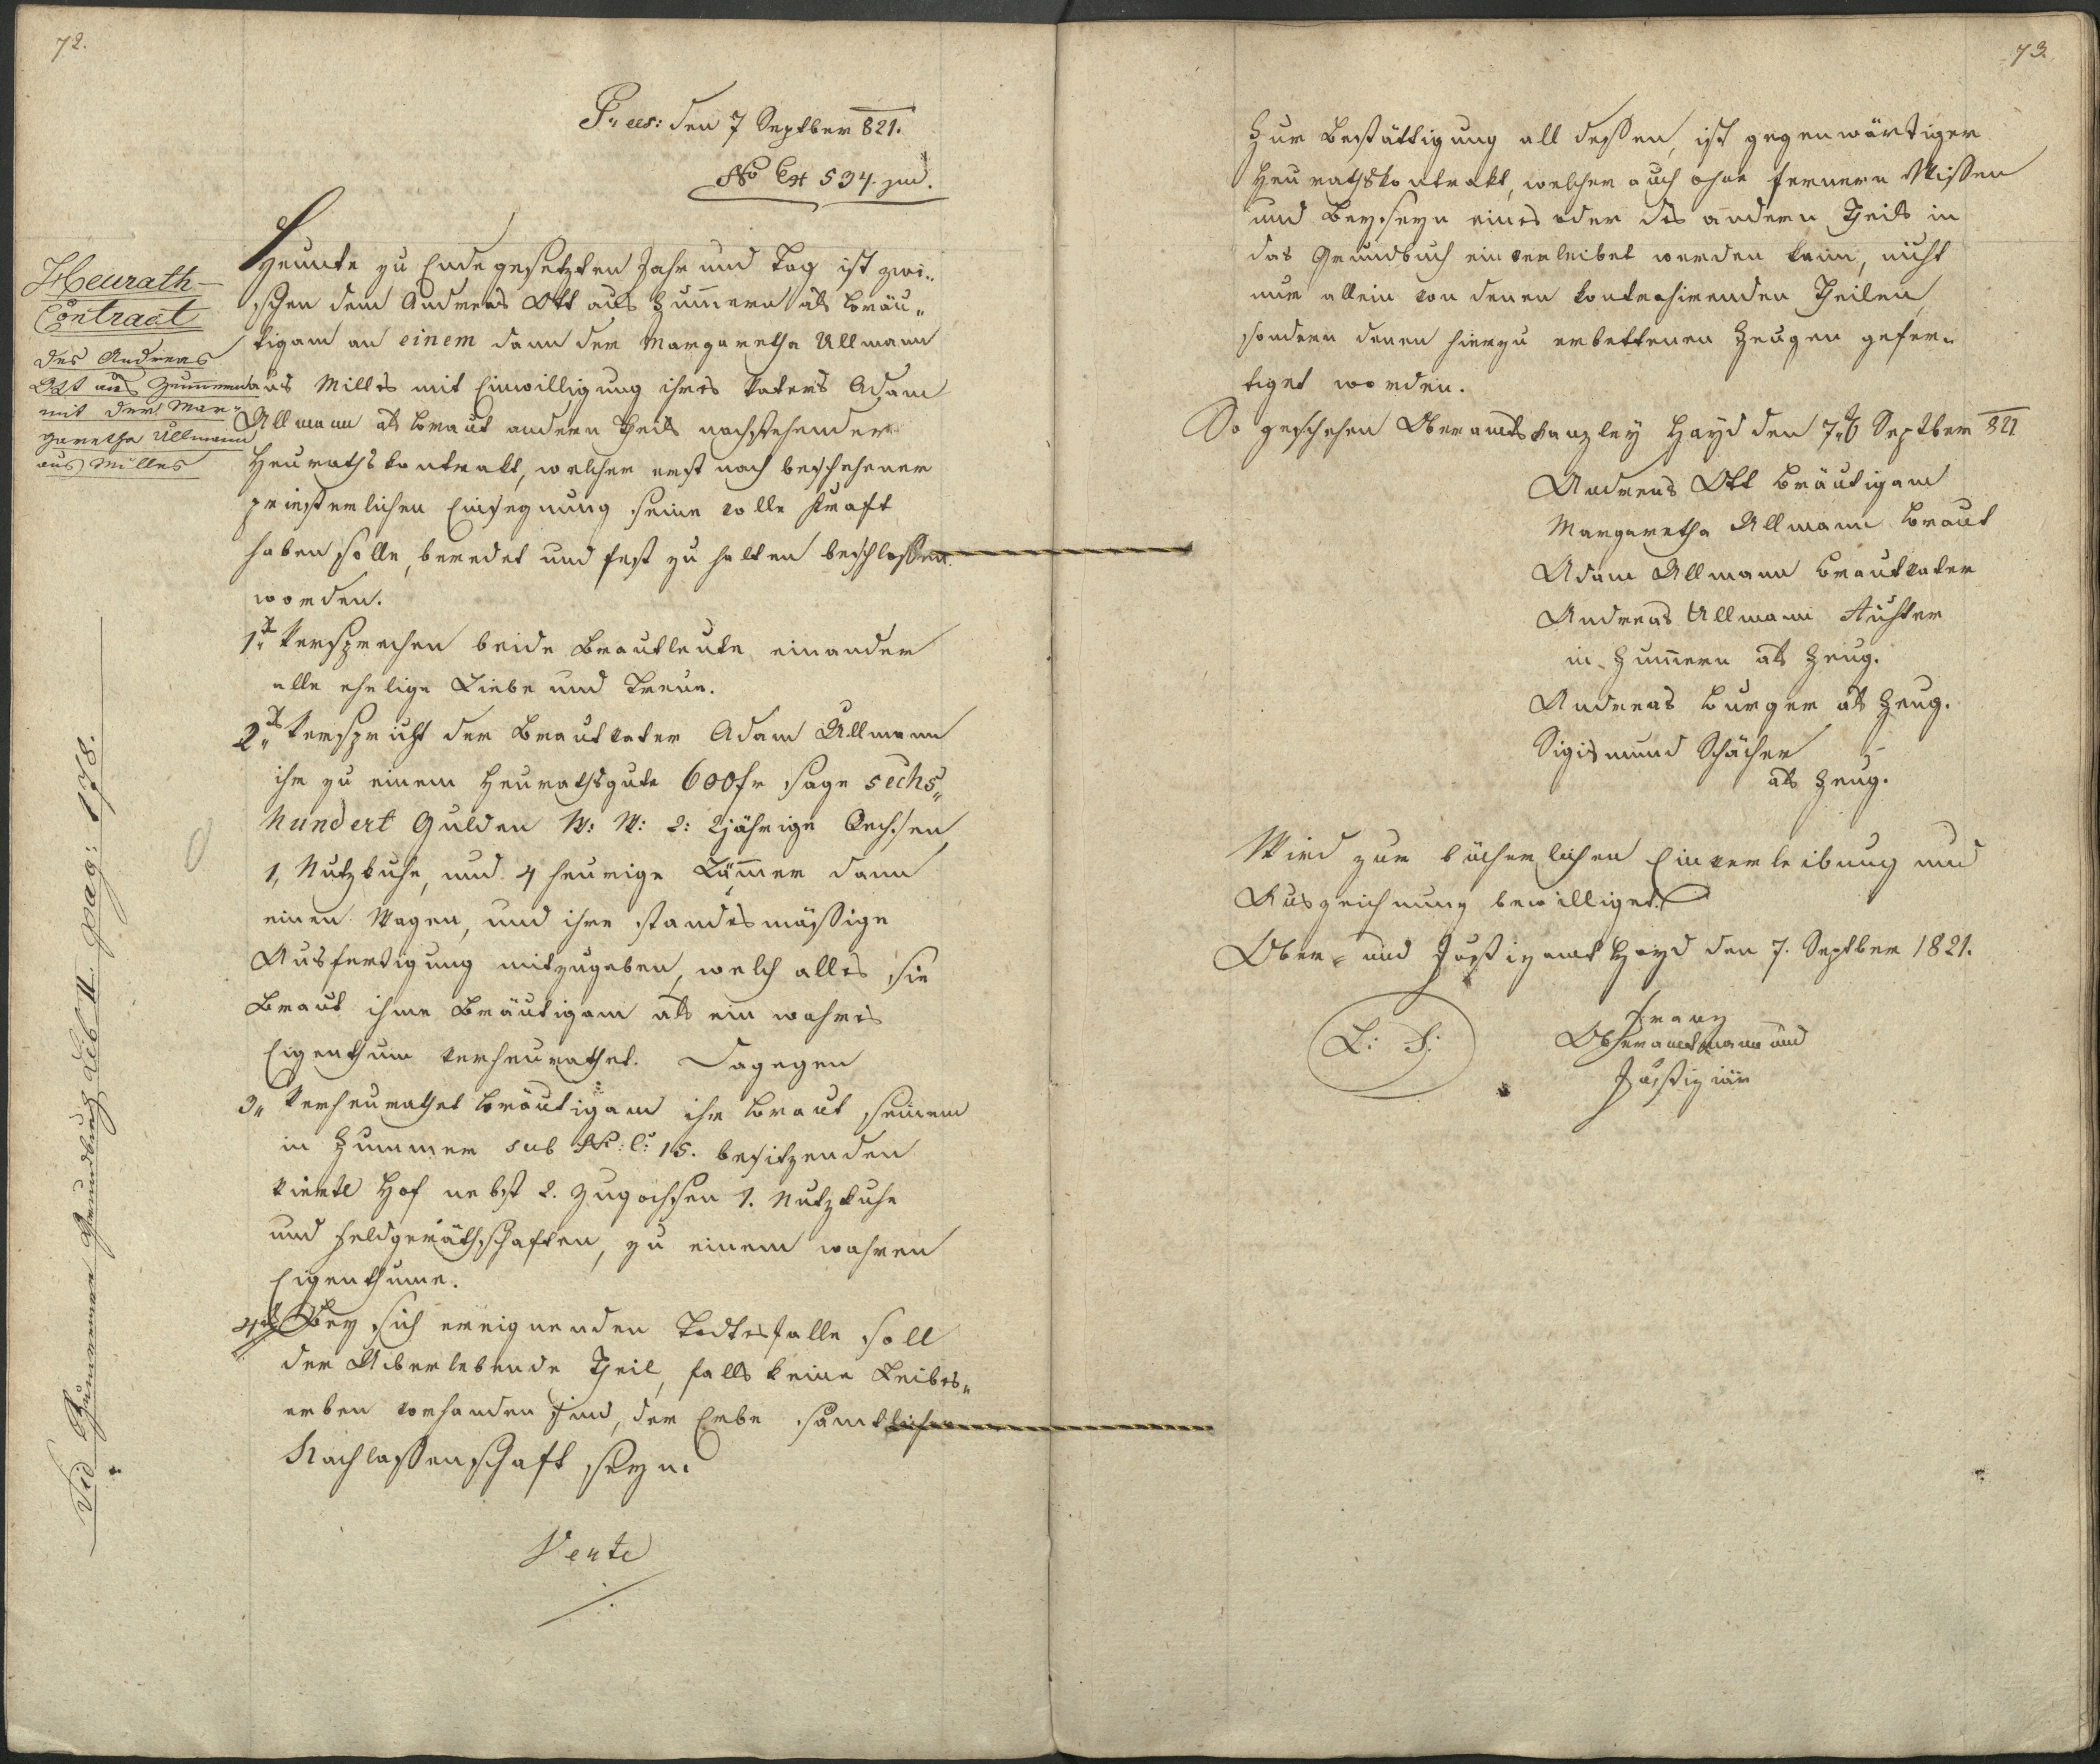 72.
Præs: den 7 Septber 821.
No Ex 534. jud.
Heurath-
Contract
des Andreas
Ott aus Zummern
mit der Mar-
garetha Ullmann
aus Milles
Vid Zummerner Grundbuch Lib II. pag: 178.
Heunte zu Ende gesetzten Jahr und Tag ist zwi-
schen dem Andreas Ott aus Zummern als Bräu-
tigam an einem dann der Margaretha Ullmann
aus Milles mit Einwilligung ihres Vaters Adam
Ullmann als Braut andern Theils nachstehender
Heurathskontrakt, welcher erst nach beschehener
priesterlichen Einsegnung seine volle Kraft
haben solle, beredet und fest zu halten beschlossen
worden.
1. Versprechen beide Brautleute einander
alle ehelige Liebe und Treue.
2. Verspricht der Brautvater Adam Ullmann
ihr zu einem Heurathsgute 600 fr sage sechs-
hundert Gulden W: W: 2: 2jährige Oechsen,
1, Nutzkuhe, und 4 heurige Lämmer dann
einen Wagen, und ihre standesmässige
Ausfertigung mitzugeben, welch alles sie
Braut ihme Bräutigam als ein wahres
Eigenthum verheurathet. Dagegen
3. Verheurathet Bräutigam ihr Braut seinem
in Zummer sub No: C: 15. besitzenden
viertl Hof nebst 2. Zugochsen 1. Nutzkuhe
und Feldgeräthschaften, zu einem wahren
Eigenthume.
4. Bey sich ereignenden Todtesfalle soll
der Überlebende Theil, falls keine Leibes-
erben vorhanden sind, der Erbe sämtlicher
Nachlassenschaft seyn.
Verte
73.
Zur Bestättigung all dessen, ist gegenwärtiger
Heurathskontrakt, welcher auch ohne fernern Wissen
und Beyseyn eines oder des andern Theils in
das Grundbuch einverleibet werden kann, nicht
nur allein von denen kontrahirenden Theilen,
sondern denen hierzu erbettenen Zeugen gefer-
tiget worden.
So geschehen Oberamtskanzley Hayd den 7. Septber 821
Andreas Ott Bräutigam
Margaretha Ullmann Braut
Adam Ullmann Brautvater
Andreas Ullmann Richter
in Zummern als Zeug.
Andreas Burger als Zeug.
Sigismund Schächer
als Zeug.
Wird zur bücherlichen Einverleibung und
Auszeichnung bewilliget.
Ober- und Justizamt Hayd den 7. Septber 1821.
L: S:
Franz
Oberamtmann und
Justiziär